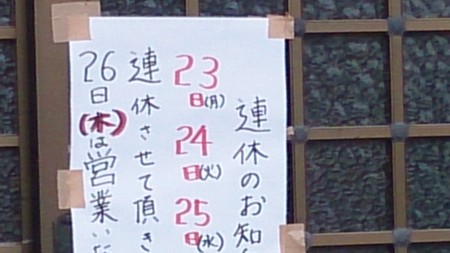 連休のお知
23日(月)
24日(火)
25日(水)
連休させて頂き
26日(木)は営業いた